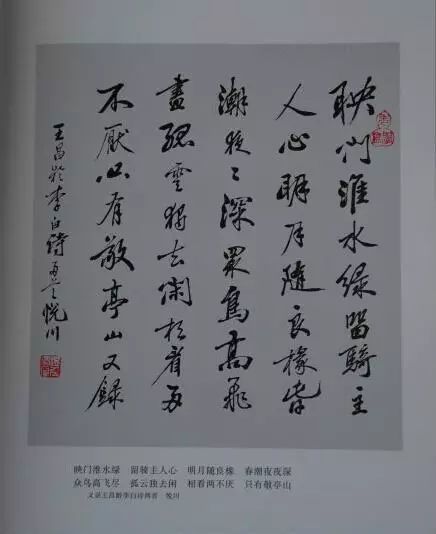 映門淮水綠留騎主
人心明月隨良椽春
潮夜々深眾鳥高飛
盡孤雲獨去閑相看两
不厭只有敬亭山又録
王昌龄李白詩兩首悦川
映门淮水绿 留骑主人心 明月随良椽 春潮夜夜深
众鸟高飞尽 孤云独去闲 相看两不厌 只有敬亭山
又录王昌龄李白诗两首 悦川